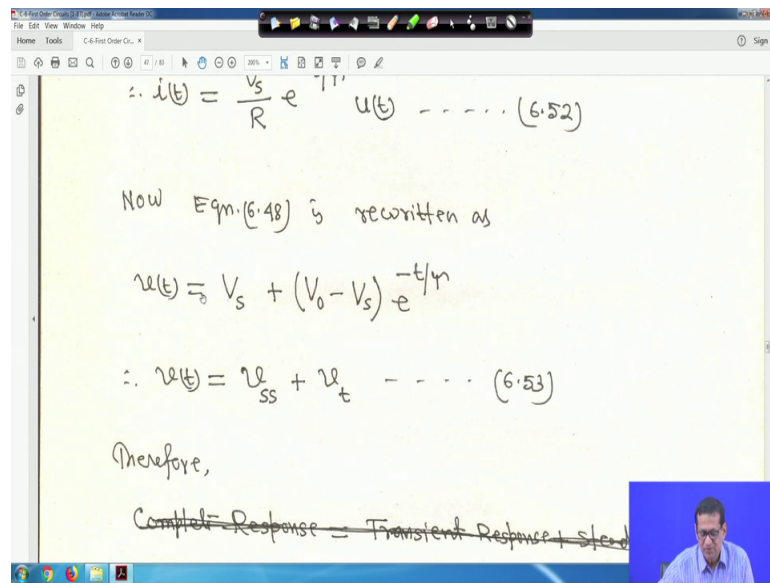 C-6-First Order Circuits [1-83].pdf - Adobe Acrobat Reader DC
File Edit View Window Help
Home Tools C-6-First Order Cir... × Sign
47 / 83 200%
∴ i(t) = V_s/R e u(t) ----- (6.52)
Now Eqn.(6.48) is rewritten as
v(t) = V_s + (V_0 - V_s) e^{-t/τ}
∴ v(t) = v_ss + v_t ---- (6.53)
Therefore,
Complete Response = Transient Response + Stead